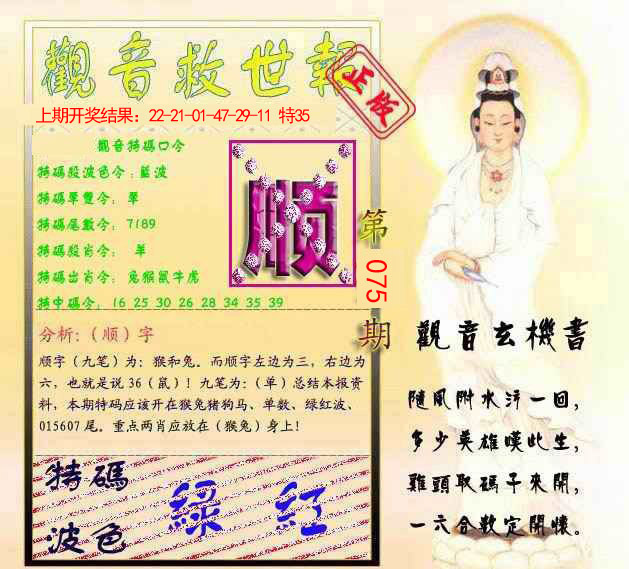 觀音救世報
正版
上期开奖结果：22-21-01-47-29-11 特35
觀音特碼口令
特碼段波色令：藍波
特碼單雙令： 單
特碼尾數令： 7189
特碼段肖令： 单
特碼出肖令： 兔猴鼠牛虎
特中碼令： 16 25 30 26 28 34 35 39
顺
第075期
分析:（顺）字
顺字（九笔）为：猴和兔。而顺字左边为三，右边为
六，也就是说36（鼠）！九笔为：（单）总结本报资
料，本期特码应该开在猴兔猪狗马、单数、绿红波、
015607尾。重点两肖应放在（猴兔）身上！
特碼
波色
綠 紅
觀音玄機書
隨風附水浮一回，
多少英雄嘆此生，
雞頭取碼子來開，
一六合數定開懷。